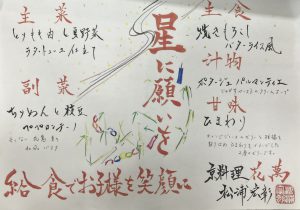 主菜
とりもも肉と夏野菜
ラタトゥーユ仕立て
副菜
ちりめんと枝豆
ペペロンチーノ
星に願いを
主食
焼きもろこし
バターライス風
汁物
ポタージュ パルマンティエ
甘味
ひまわり
京料理 花萬
松浦宏彰
給食でお子様を笑顔に